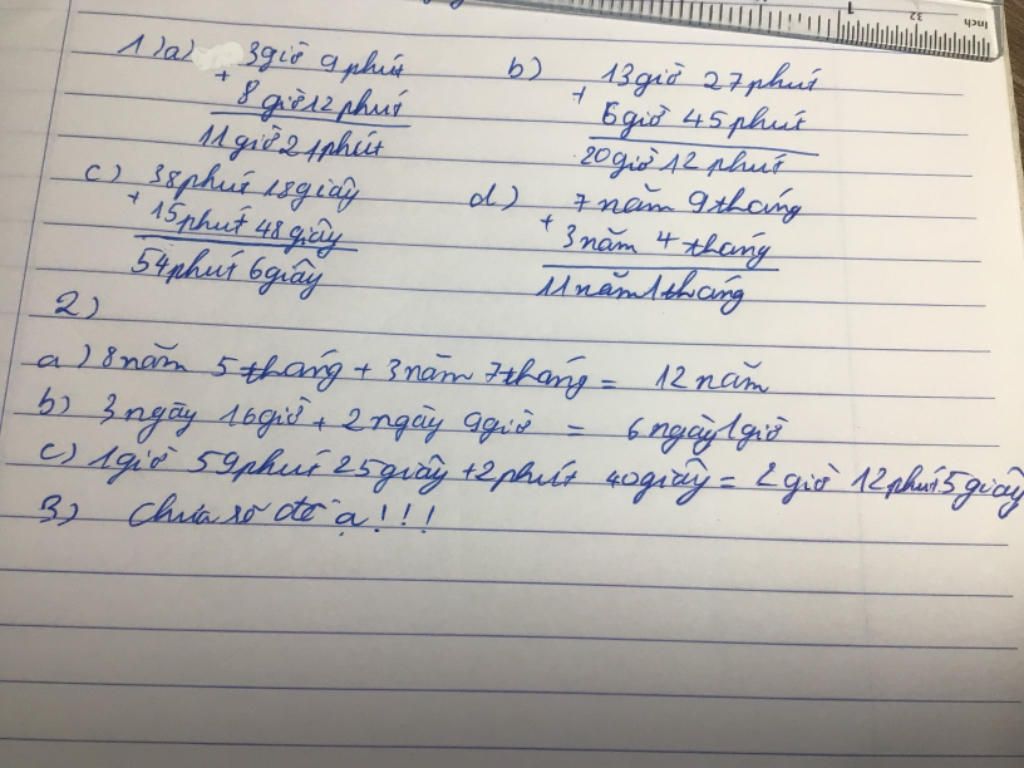 1) a) 3giờ 9 phút
+
8 giờ 12 phút
11 giờ 21 phút
b) 13 giờ 27 phút
+
6 giờ 45 phút
20 giờ 12 phút
c) 38 phút 18 giây
+
15 phút 48 giây
54 phút 6 giây
d) 7 năm 9 tháng
+
3 năm 4 tháng
11 năm 1 tháng
2)
a) 8 năm 5 tháng + 3 năm 7 tháng = 12 năm
b) 3 ngày 16 giờ + 2 ngày 9 giờ = 6 ngày 1 giờ
c) 1 giờ 59 phút 25 giây + 2 phút 40 giây = 2 giờ 12 phút 5 giây
3) Chưa rõ đề ạ!!!
1
32
Inch